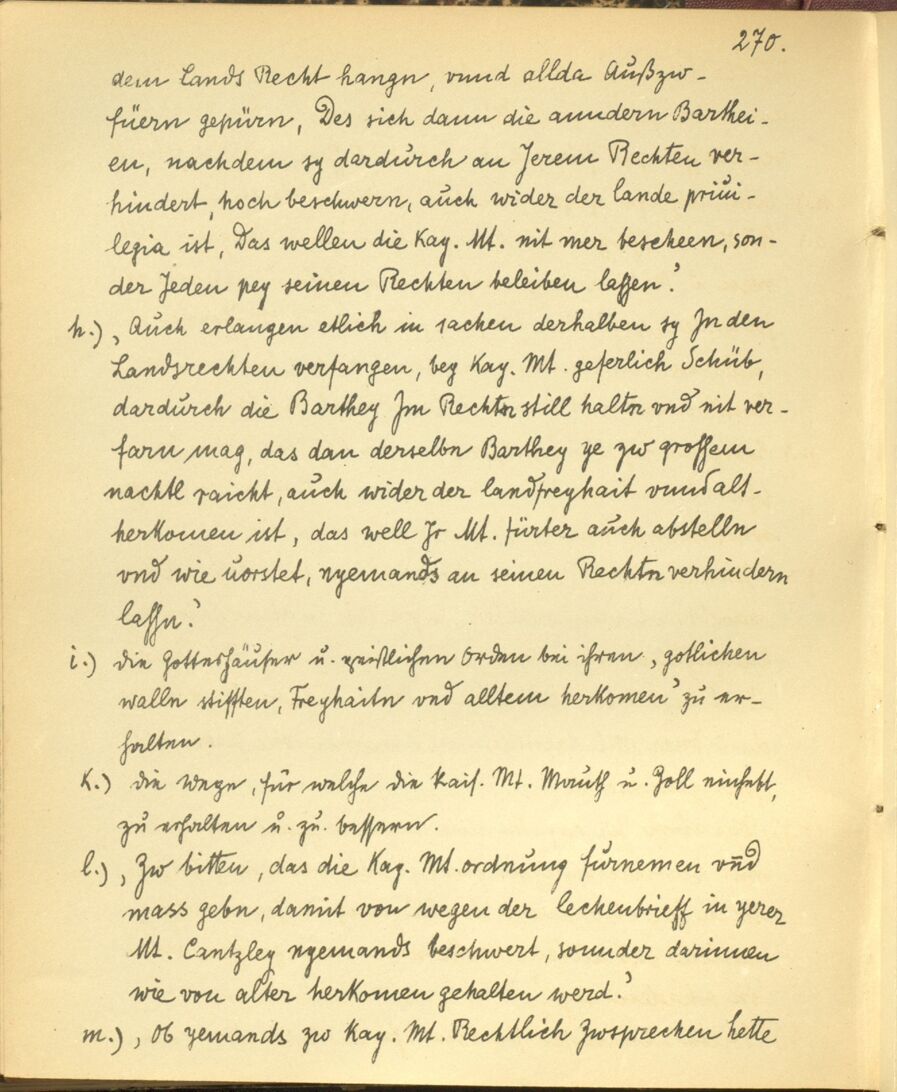 270.
dem Lands Recht hangn, vnnd allda Außzw-
füern gepürn, Des sich dann die anndern Barthei-
en, nachdem sy dardurch an Jerem Rechten ver-
hindert, hoch beschwern, auch wider der lande priui-
legia ist, Das wellen die Kay. Mt. nit mer bescheen, son-
der Jeden pey seinen Rechten beleiben lassen.'
h.) ‚Auch erlangen etlich in sachen derhalben sy Jn den
Landsrechten verfangen, bey Kay. Mt. geferlich Schüb,
dardurch die Barthey Jm Rechtn still haltn vnd nit ver-
farn mag, das dan derselbn Barthey ye zw grossem
nachtl raicht, auch wider der landfreyhait vnnd alt-
herkomen ist, das well Jr Mt. fürter auch abstelln
vnd wie uorstet, nyemands an seinen Rechtn verhindern
lassn.'
i.) die Gotteshäuser u. geistlichen Orden bei ihren ‚gotlichen
walln stifften, Freyhaitn vnd alltem herkomen' zu er-
halten.
k.) die Wege, für welche die kais. Mt. Mauth u. Zoll einhebt,
zu erhalten u. zu bessern.
l.) ‚Zw bitten, das die Kay. Mt. ordnung furnemen vnd
mass gebn, damit von wegen der lechenbrieff in yerer
Mt. Cantzley nyemands beschwert, sonnder darinnen
wie von alter herkomen gehalten werd.'
m.) ‚Ob yemands zw Kay. Mt. Rechtlich Zwsprechen hette